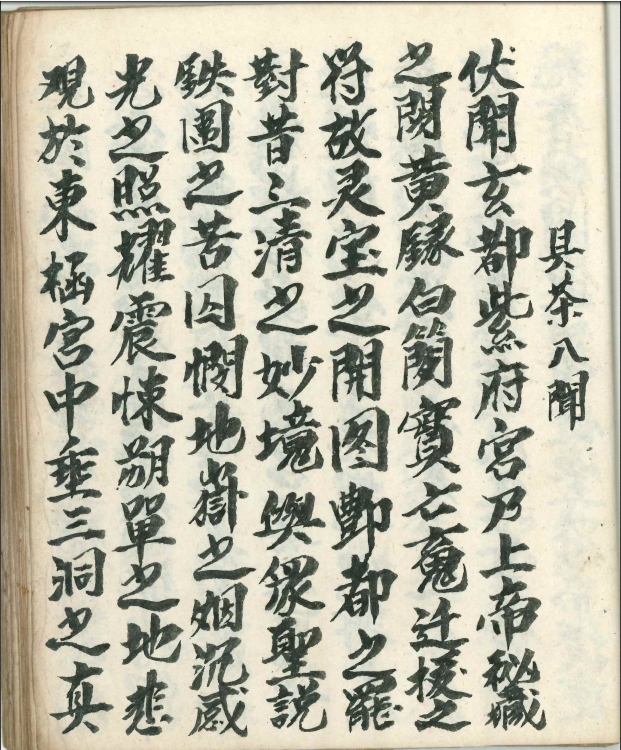 具茶八聞
伏聞玄都紫府宮乃上帝秘藏
之閞黃籙白簡寳亡䰟迁援之
符故灵宝之開图酆都之罷
對昔三清之妙境與衆聖説
鉄圍之苦囚憫地嶽之烟沉感
光之照耀震悚朔單之地悲
覌於東極宮中垂三洞之真